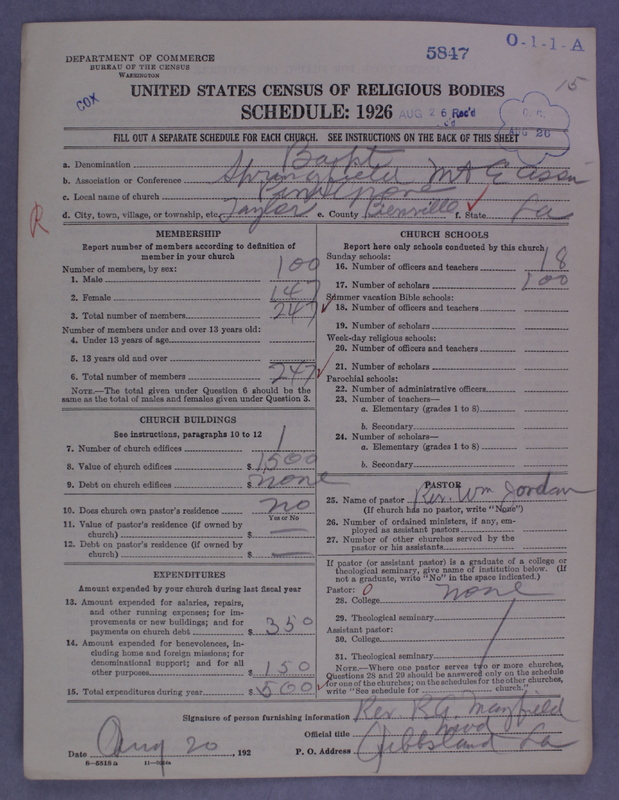 DEPARTMENT OF COMMERCE
BUREAU OF THE CENSUS
WASHINGTON
COX
5847
O-1-1-A
15
UNITED STATES CENSUS OF RELIGIOUS BODIES
SCHEDULE: 1926
AUG 26 Rec'd
AUG 26
FILL OUT A SEPARATE SCHEDULE FOR EACH CHURCH. SEE INSTRUCTIONS ON THE BACK OF THIS SHEET
a. Denomination Bapt
b. Association or Conference Springfield
c. Local name of church
d. City, town, village, or township, etc. Taylor e. County Bienville f. State La
R
MEMBERSHIP
Report number of members according to definition of
member in your church
Number of members, by sex:
1. Male 100
2. Female 147
3. Total number of members 247
Number of members under and over 13 years old:
4. Under 13 years of age
5. 13 years old and over
6. Total number of members 247
NOTE.—The total given under Question 6 should be the
same as the total of males and females given under Question 3.
CHURCH BUILDINGS
See instructions, paragraphs 10 to 12
7. Number of church edifices 1
8. Value of church edifices $ 1500
9. Debt on church edifices $ none
10. Does church own pastor's residence no
Yes or No
11. Value of pastor's residence (if owned by
church) $ —
12. Debt on pastor's residence (if owned by
church) $ —
EXPENDITURES
Amount expended by your church during last fiscal year
13. Amount expended for salaries, repairs,
and other running expenses; for im-
provements or new buildings; and for
payments on church debt $ 350
14. Amount expended for benevolences, in-
cluding home and foreign missions; for
denominational support; and for all
other purposes $ 150
15. Total expenditures during year $ 500
CHURCH SCHOOLS
Report here only schools conducted by this church
Sunday schools:
16. Number of officers and teachers 18
17. Number of scholars 100
Summer vacation Bible schools:
18. Number of officers and teachers
19. Number of scholars
Week-day religious schools:
20. Number of officers and teachers
21. Number of scholars
Parochial schools:
22. Number of administrative officers
23. Number of teachers—
a. Elementary (grades 1 to 8)
b. Secondary
24. Number of scholars—
a. Elementary (grades 1 to 8)
b. Secondary
PASTOR
25. Name of pastor Rev. Wm Jordan
(If church has no pastor, write "None")
26. Number of ordained ministers, if any, em-
ployed as assistant pastors
27. Number of other churches served by the
pastor or his assistants
If pastor (or assistant pastor) is a graduate of a college or
theological seminary, give name of institution below. (If
not a graduate, write "No" in the space indicated.)
Pastor: 0 none
28. College
29. Theological seminary
Assistant pastor:
30. College
31. Theological seminary
NOTE.—Where one pastor serves two or more churches,
Questions 28 and 29 should be answered only on the schedule
for one of the churches; on the schedules for the other churches,
write "See schedule for church."
Signature of person furnishing information Rev. R.A. Mayfield
Official title
Date Aug 20, 192 P. O. Address Gibbsland La